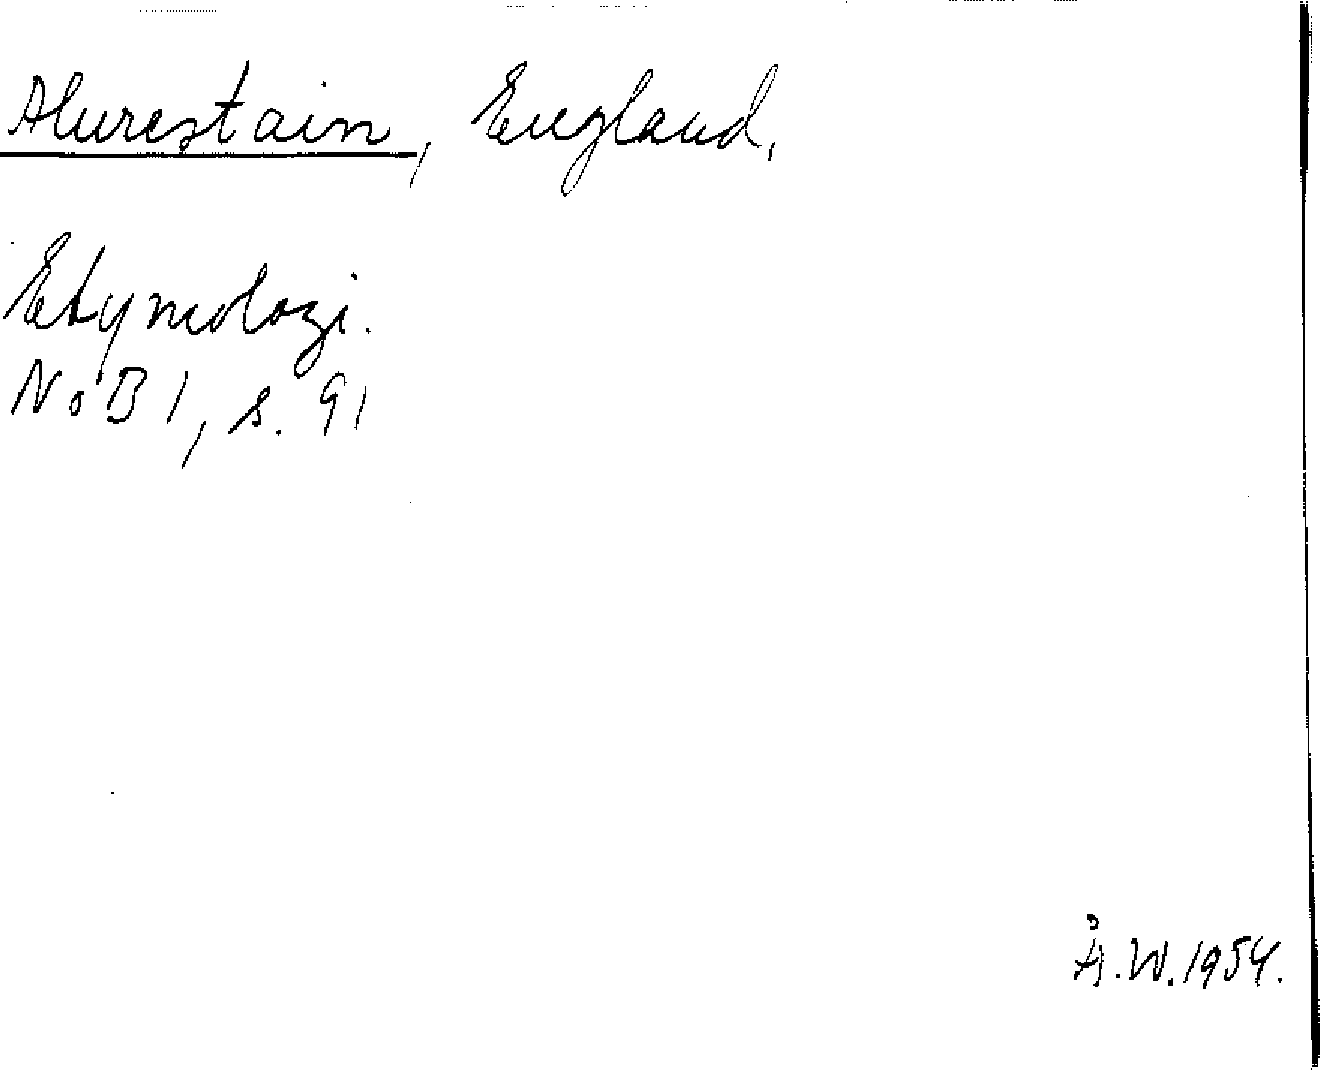 Alurestain, England.
Etymologi.
NoB 1, s. 91
Å.W. 1954.